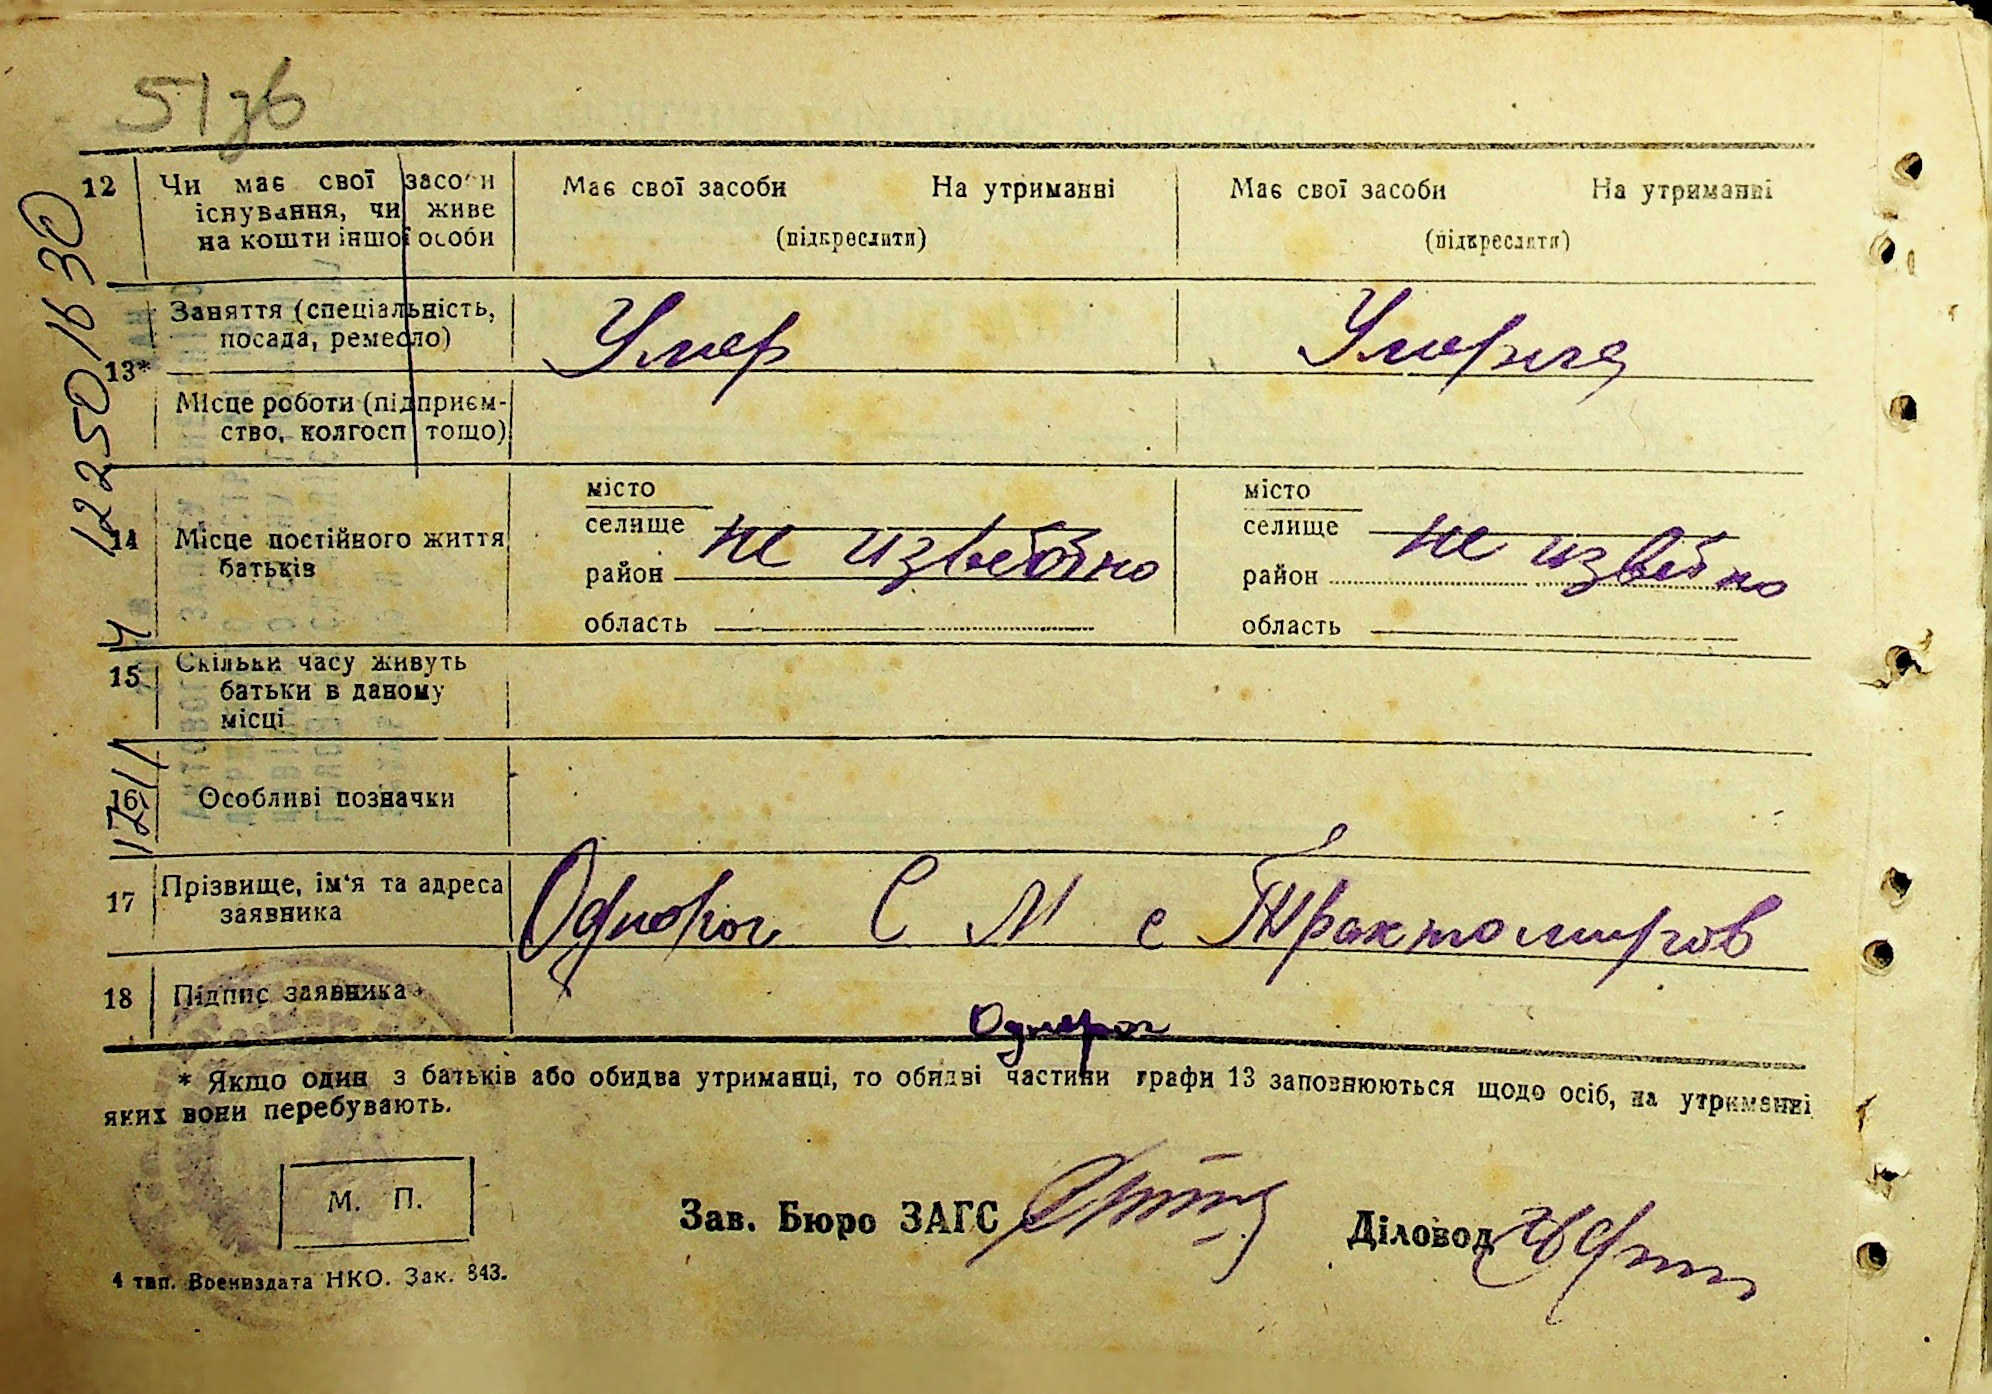 51 зв
12 Чи має свої засоби Має свої засоби На утриманні Має свої засоби На утриманні
існування, чи живе
на кошти іншої особи (підкреслити) (підкреслити)
Заняття (спеціальність,
посада, ремесло) Умер Умерла
13*
Місце роботи (підприєм-
ство, колгосп тощо)
місто місто
селище селище
14 Місце постійного життя не известно не известно
батьків район район
область область
15 Скільки часу живуть
батьки в даному
місці
16 Особливі позначки
17 Прізвище, ім'я та адреса
заявника Однорог С М с Трактомиров
18 Підпис заявника Однорог
* Якщо один з батьків або обидва утриманці, то обидві частини графи 13 заповнюються щодо осіб, на утриманні
яких вони перебувають.
М. П.
Зав. Бюро ЗАГС
Діловод
4 тип. Воениздата НКО. Зак. 843.
12250 1630